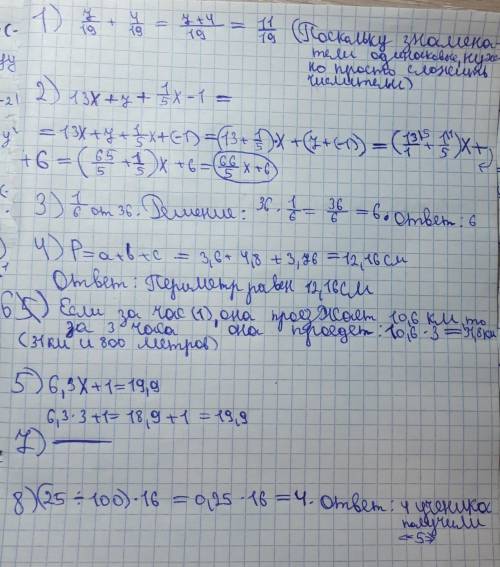 1) 7/19 + 4/19 = 7+4/19 = 11/19 (Поскольку знамена-
тели одинаковы, нуж-
но просто сложить
числители)
2) 13x + 7 + 1/5x - 1 =
= 13x + 7 + 1/5x + (-1) = (13 + 1/5)·x + (7 + (-1)) = (13/1 + 1/5)x +
+ 6 = (65/5 + 1/5)x + 6 = 66/5x + 6
3) 1/6 от 36. Решение: 36 · 1/6 = 36/6 = 6. Ответ: 6
4) P = a + b + c = 3,6 + 4,8 + 3,76 = 12,16 см
Ответ: Периметр равен 12,16 см
6) Если за час (1), она проезжает 10,6 км, то
за 3 часа, она проедет: 10,6 · 3 = 31,8 км
(31 км и 800 метров)
5) 6,3x + 1 = 19,9
6,3 · 3 + 1 = 18,9 + 1 = 19,9
7) —
8) (25 ÷ 100) · 16 = 0,25 · 16 = 4. Ответ: 4 ученика
получили
«5»